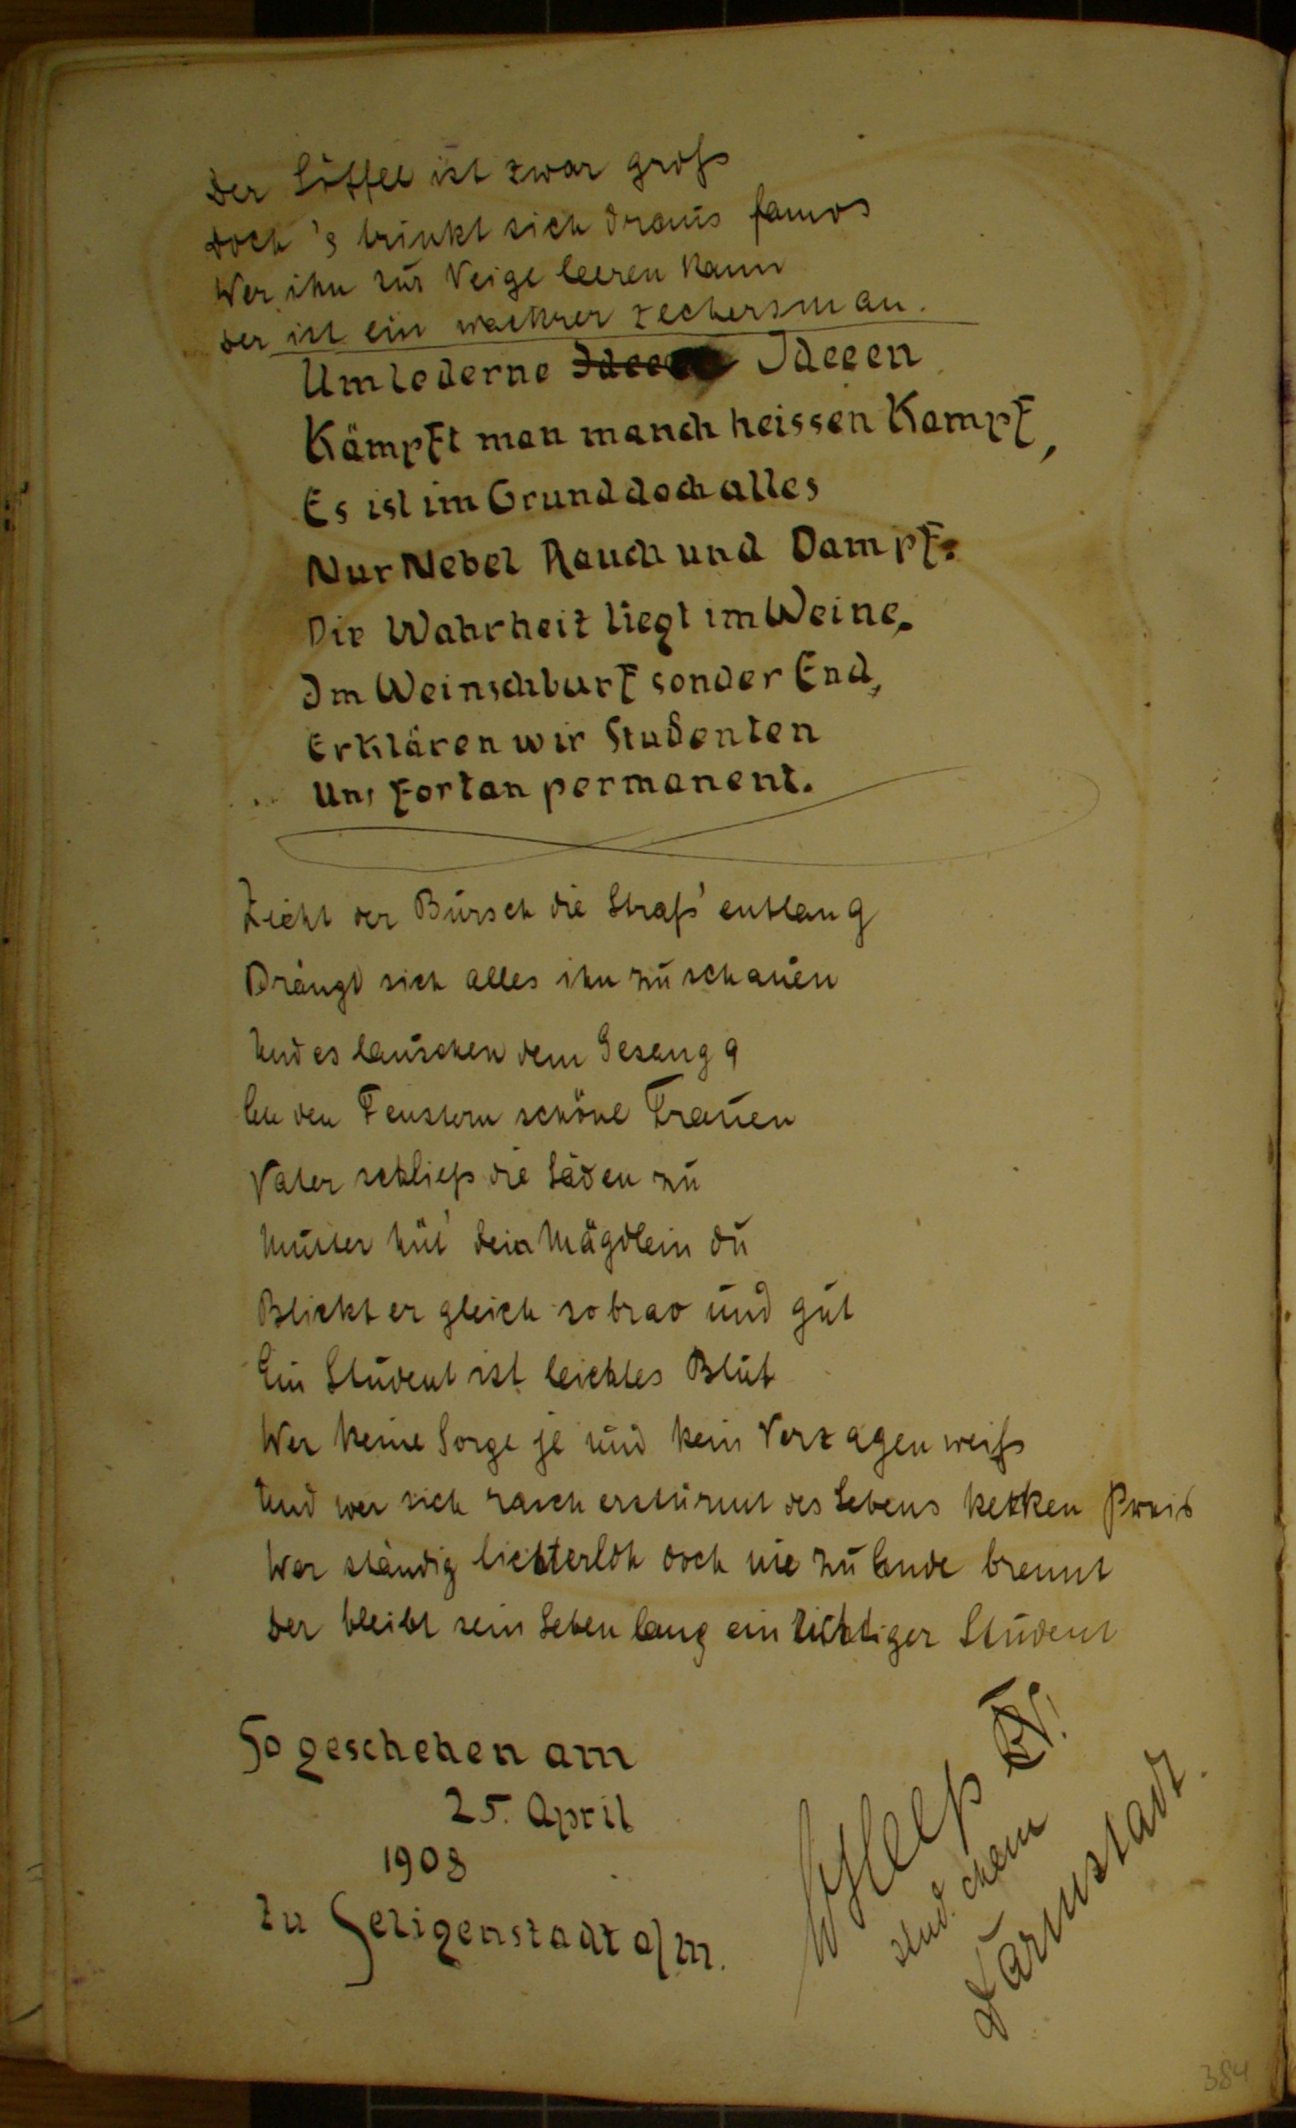 Der Löffel ist zwar groß
Doch 's trinkt sich draus famos
Wer ihn zur Neige leeren kann
Der ist ein wackrer Zechersman.
Um lederne Ideeen Ideeen
Kämpft man manch heissen Kampf,
Es ist im Grund doch alles
Nur Nebel Rauch und Dampf.
Die Wahrheit liegt im Weine,
Im Weinschlurf sonder End,
Erklären wir Studenten
Uns fortan permanent.
Zieht der Bursch die Straß' entlang
Drängt sich alles ihn zu schauen
Und es lauschen dem Gesang
An den Fenstern schöne Frauen
Vater schließ die Läden zu
Mutter hüt' dein Mägdlein du
Blickt er gleich so brav und gut
Ein Student ist leichtes Blut
Wer keine Sorge je und kein Verzagen weiß
Und wer sich rasch erstürmt des Lebens kecken Preis
Wer ständig lichterloh doch nie zu Ende brennt
Der bleibt sein Leben lang ein richtiger Student
So geschehen am
25. April
1908
zu Seligenstadt a/M.
stud. chem
Darmstadt.
384